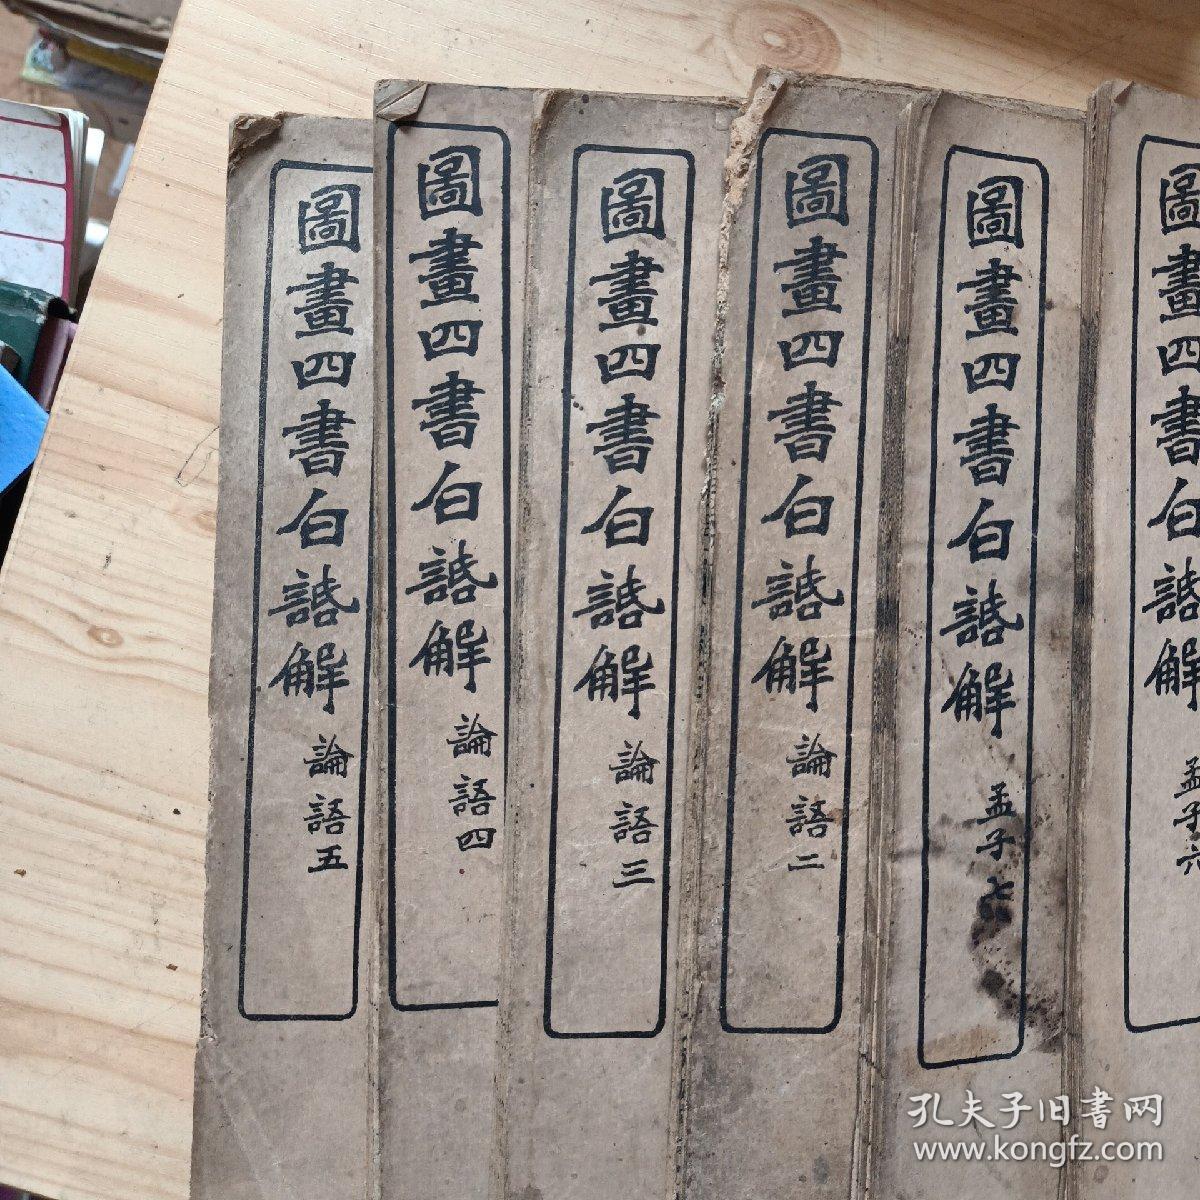 圖畫四書白話解 論語五
圖畫四書白話解 論語四
圖畫四書白話解 論語三
圖畫四書白話解 論語二
圖畫四書白話解 孟子七
圖畫四書白話解 孟子六
孔夫子旧書网
www.kongfz.com